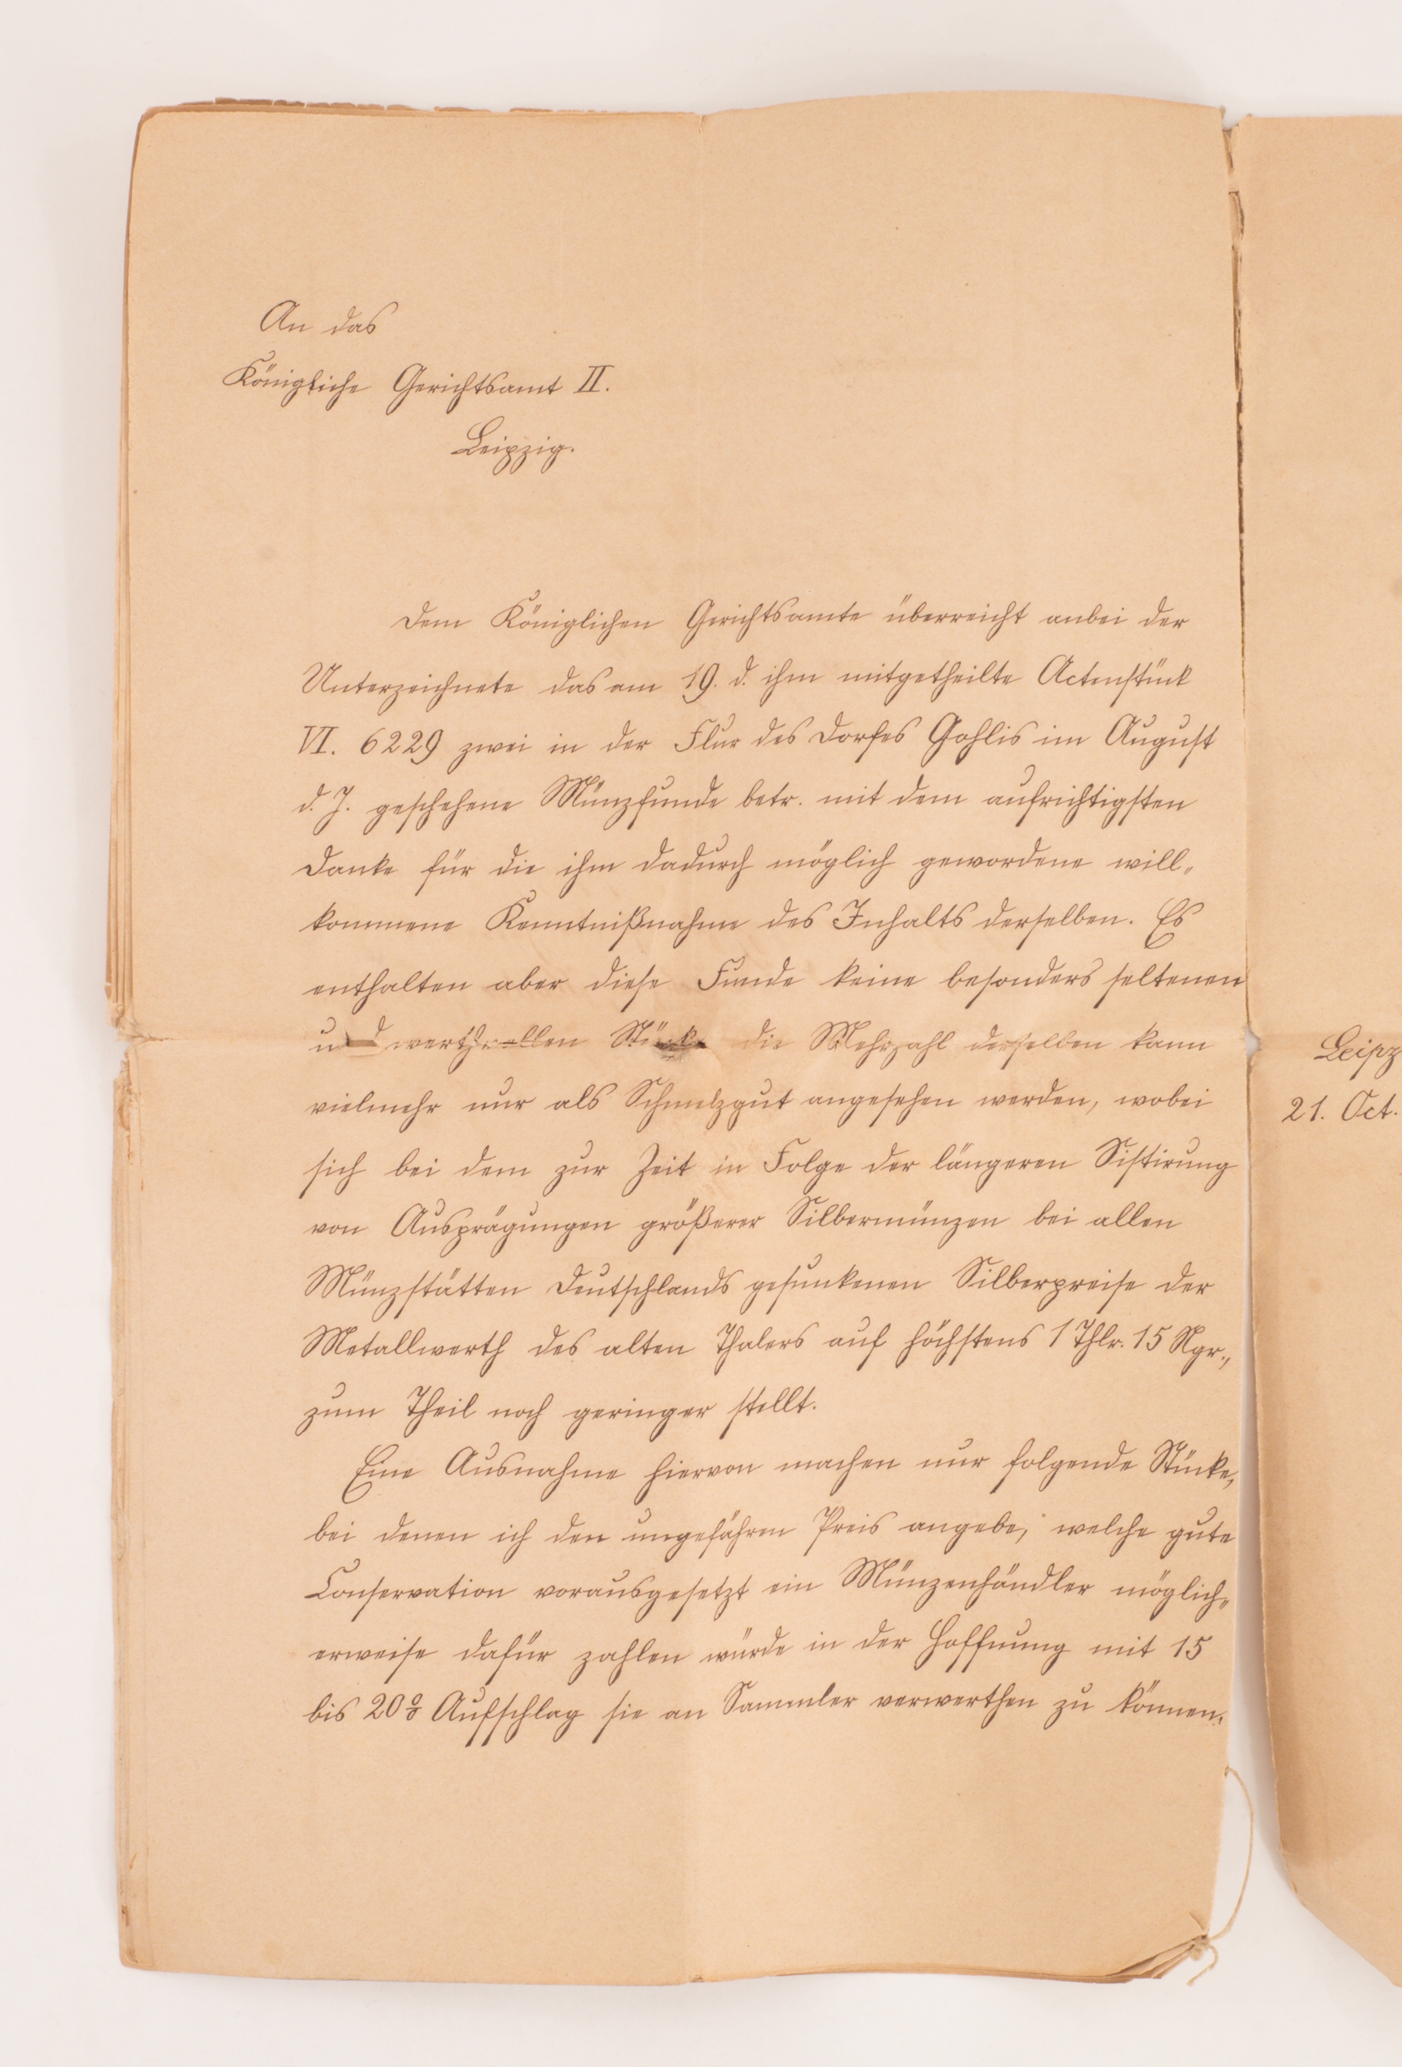 An das
Königliche Gerichtsamt II.
Leipzig.
Dem Königlichen Gerichtsamte überreicht anbei der
Unterzeichnete das am 19. d. ihm mitgetheilte Actenstück
VI. 6229 zwei in der Flur des Dorfes Gohlis im August
d. J. geschehene Münzfunde betr. mit dem aufrichtigsten
Danke für die ihm dadurch möglich gewordene will-
kommene Kenntnißnahme des Inhalts derselben. Es
enthalten aber diese Funde keine besonders seltenen
und werthvollen Stücke die Mehrzahl derselben kann
vielmehr nur als Schmelzgut angesehen werden, wobei
sich bei dem zur Zeit in Folge der längeren Sistirung
von Ausprägungen größerer Silbermünzen bei allen
Münzstätten Deutschlands gesunkenen Silberpreise der
Metallwerth des alten Thalers auf höchstens 1 Thlr. 15 Ngr.,
zum Theil noch geringer stellt.
Eine Ausnahme hiervon machen nur folgende Stücke,
bei denen ich den ungefähren Preis angebe, welche gute
Conservation vorausgesetzt ein Münzenhändler möglich-
erweise dafür zahlen würde in der Hoffnung mit 15
bis 20 % Aufschlag sie an Sammler verwerthen zu können.
Leipz
21. Oct.